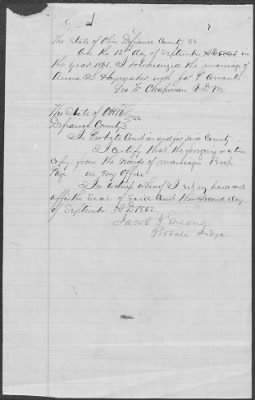 The State of Ohio Defiance County SS
On the 12 day of September
the year 1861. I solemnized the marriage of
Anna S with
Geo W. Chapman V.D.M.
The State of Ohio
Defiance County SS
In Probate Court in and for said County
I certify that the foregoing is a true
Copy from the records of marriages Book
Page in my office
In testimony whereof I set my hand and
affix the Seal of said Court this second day
of September
Jacob J Greene
Probate Judge